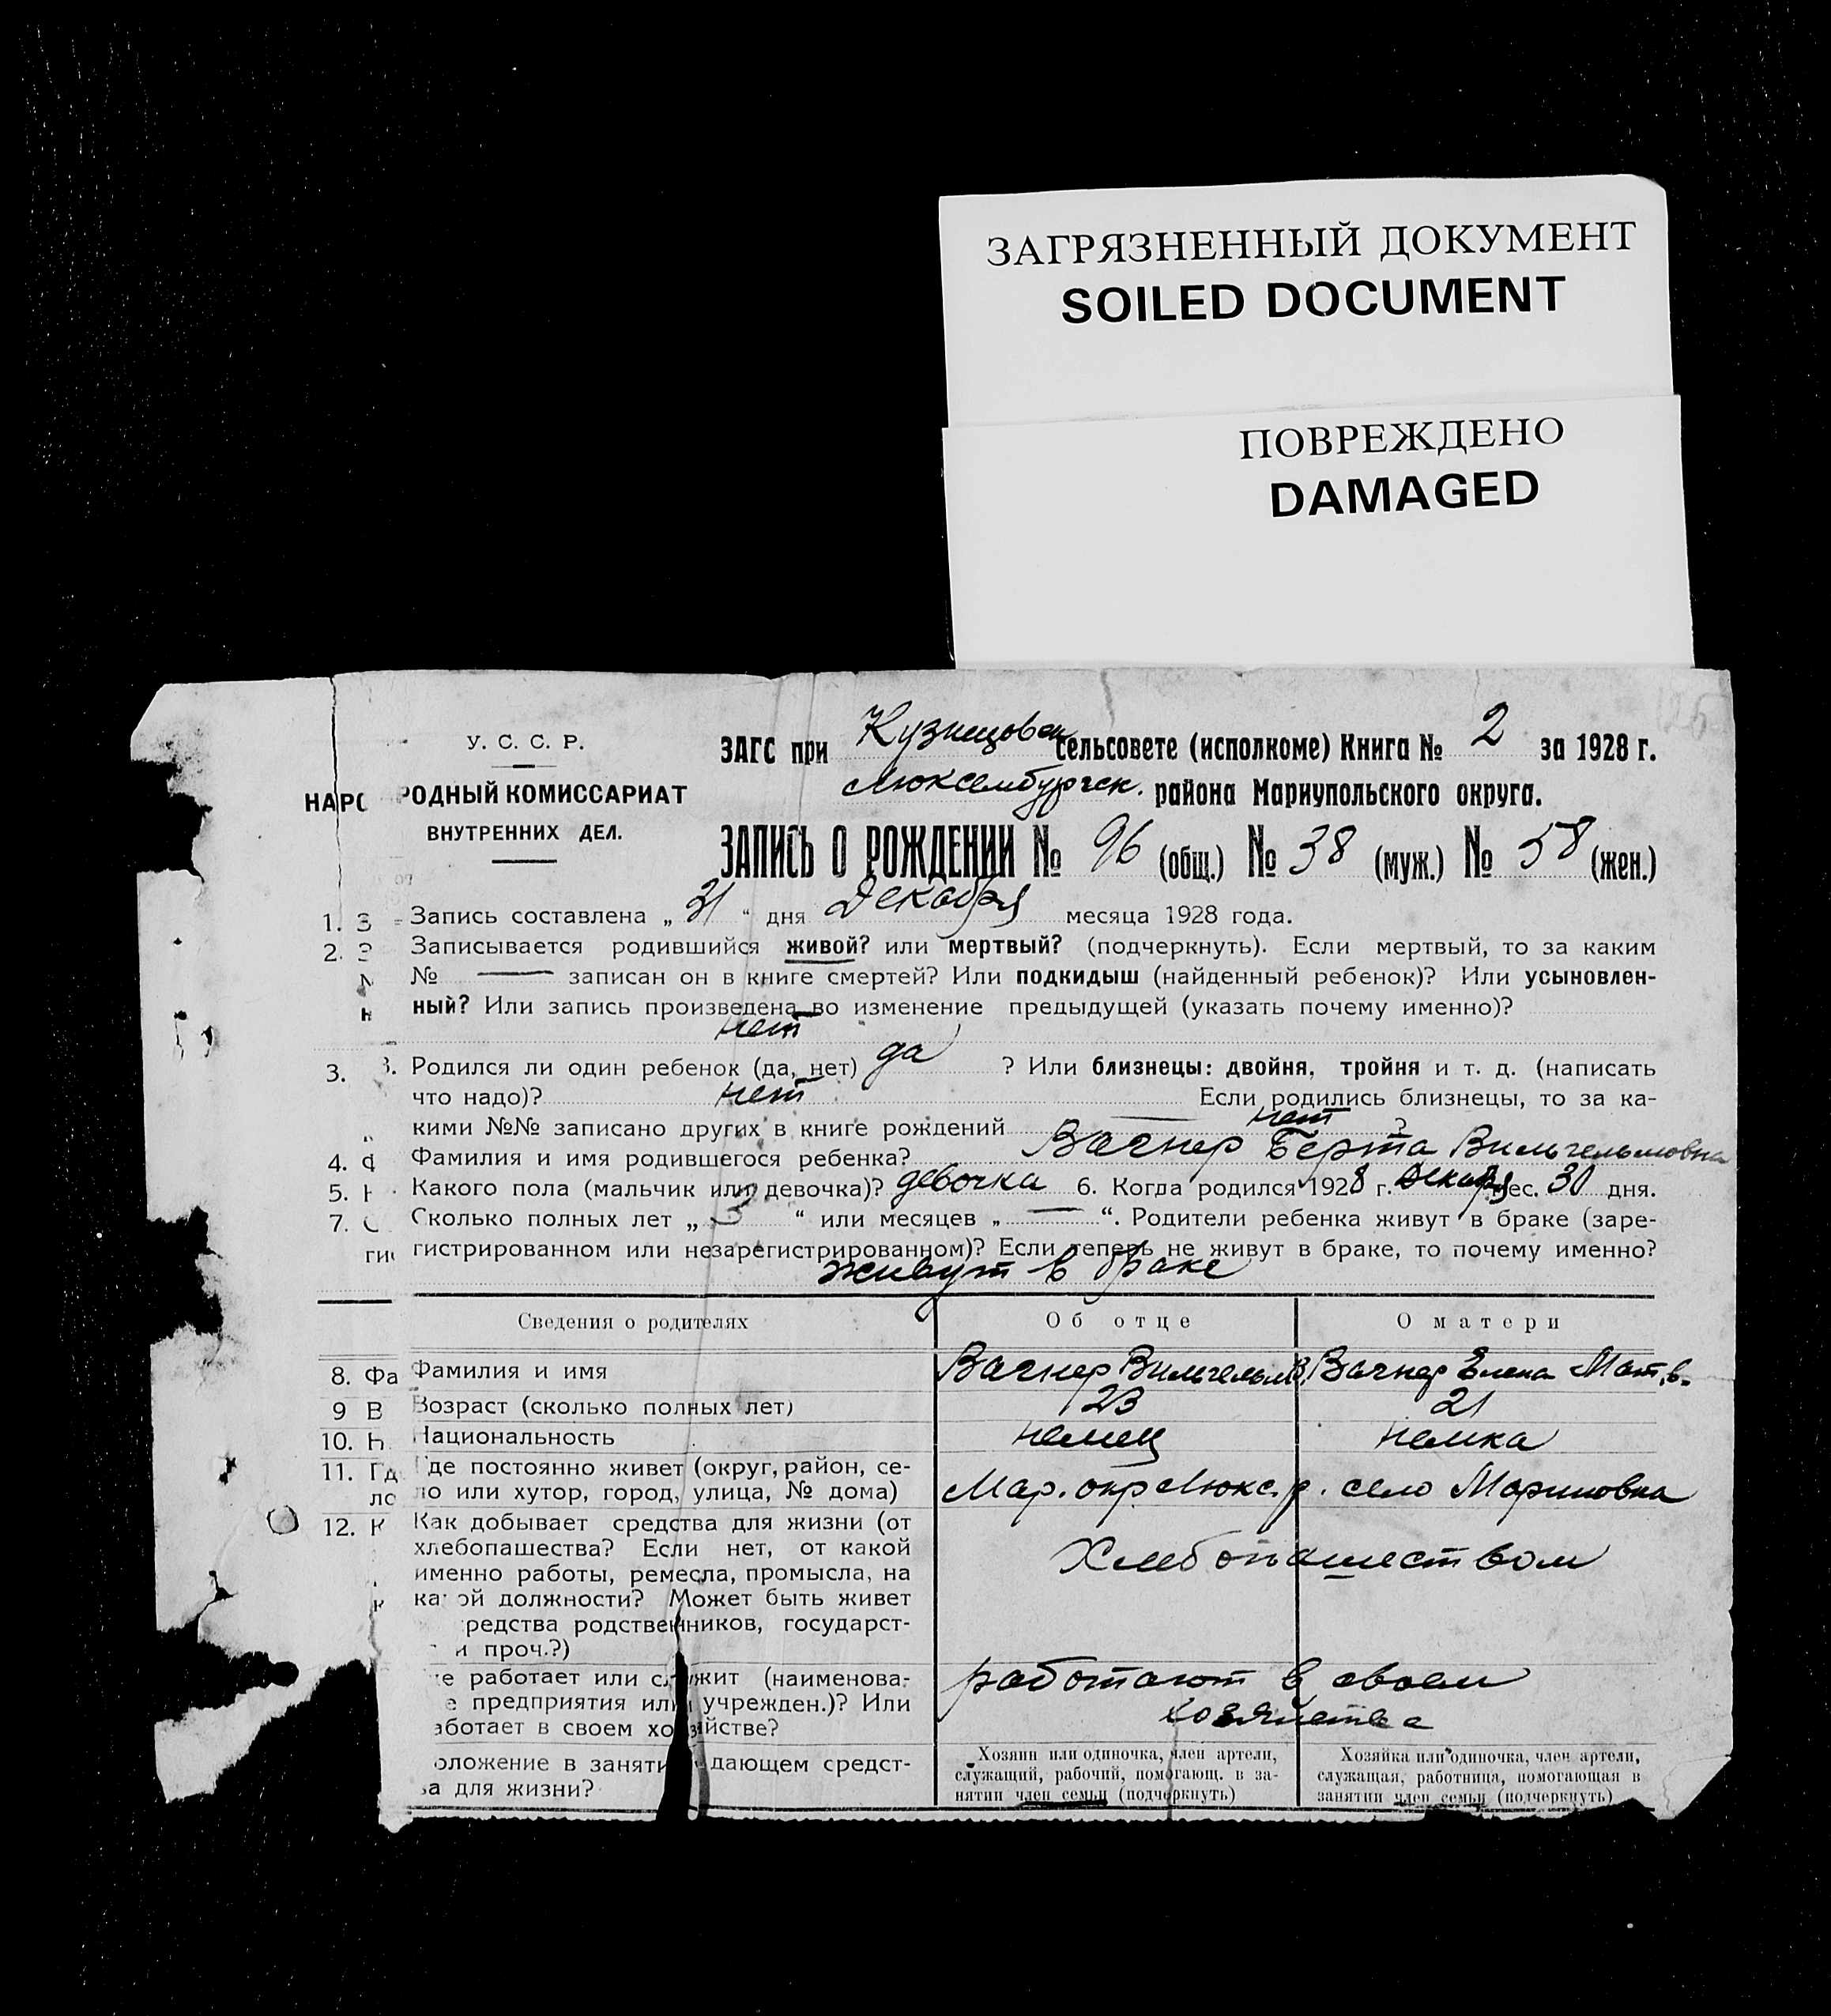 ЗАГРЯЗНЕННЫЙ ДОКУМЕНТ
SOILED DOCUMENT
ПОВРЕЖДЕНО
DAMAGED
У. С. С. Р.
НАРС РОДНЫЙ КОМИССАРИАТ
ВНУТРЕННИХ ДЕЛ.
ЗАГС при Кузнецовск сельсовете (исполкоме) Книга № 2 за 1928 г.
Люксембургск. района Мариупольского округа.
ЗАПИСЬ О РОЖДЕНИИ № 96 (общ.) № 38 (муж.) № 58 (жен.)
1. З Запись составлена „ 31 “ дня Декабря месяца 1928 года.
2. З Записывается родившийся живой? или мертвый? (подчеркнуть). Если мертвый, то за каким
№ — записан он в книге смертей? Или подкидыш (найденный ребенок)? Или усыновлен-
ный? Или запись произведена во изменение предыдущей (указать почему именно)?
нет
3. 3. Родился ли один ребенок (да, нет) да ? Или близнецы: двойня, тройня и т. д. (написать
что надо)? нет Если родились близнецы, то за ка-
кими №№ записано других в книге рождений нет ?
4. Ф Фамилия и имя родившегося ребенка? Вагнер Берта Вильгельмовна
5. Какого пола (мальчик или девочка)? девочка 6. Когда родился 1928 г. Декабря мес. 30 дня.
7. С Сколько полных лет „ 3 “ или месяцев „ — “. Родители ребенка живут в браке (заре-
гис гистрированном или незарегистрированном)? Если теперь не живут в браке, то почему именно?
живут в браке
Сведения о родителях Об отце О матери
8. Фа Фамилия и имя Вагнер Вильгельм В. Вагнер Елена Матв.
9 В Возраст (сколько полных лет) 23 21
10. Н Национальность немец немка
11. Гд Где постоянно живет (округ, район, се-
ло ло или хутор, город, улица, № дома) Мар. окр Люкс. р. село Мариновка
12. К Как добывает средства для жизни (от
хлебопашества? Если нет, от какой
именно работы, ремесла, промысла, на
какой должности? Может быть живет
редства родственников, государст-
и проч.?)
Хлебопашеством
е работает или служит (наименова-
е предприятия или учрежден.)? Или
аботает в своем хозяйстве?
работают в своем
хозяйстве
оложение в заняти дающем средст-
ва для жизни?
Хозяин или одиночка, член артели,
служащий, рабочий, помогающ. в за-
нятии член семьи (подчеркнуть)
Хозяйка или одиночка, член артели,
служащая, работница, помогающая в
занятии член семьи (подчеркнуть)